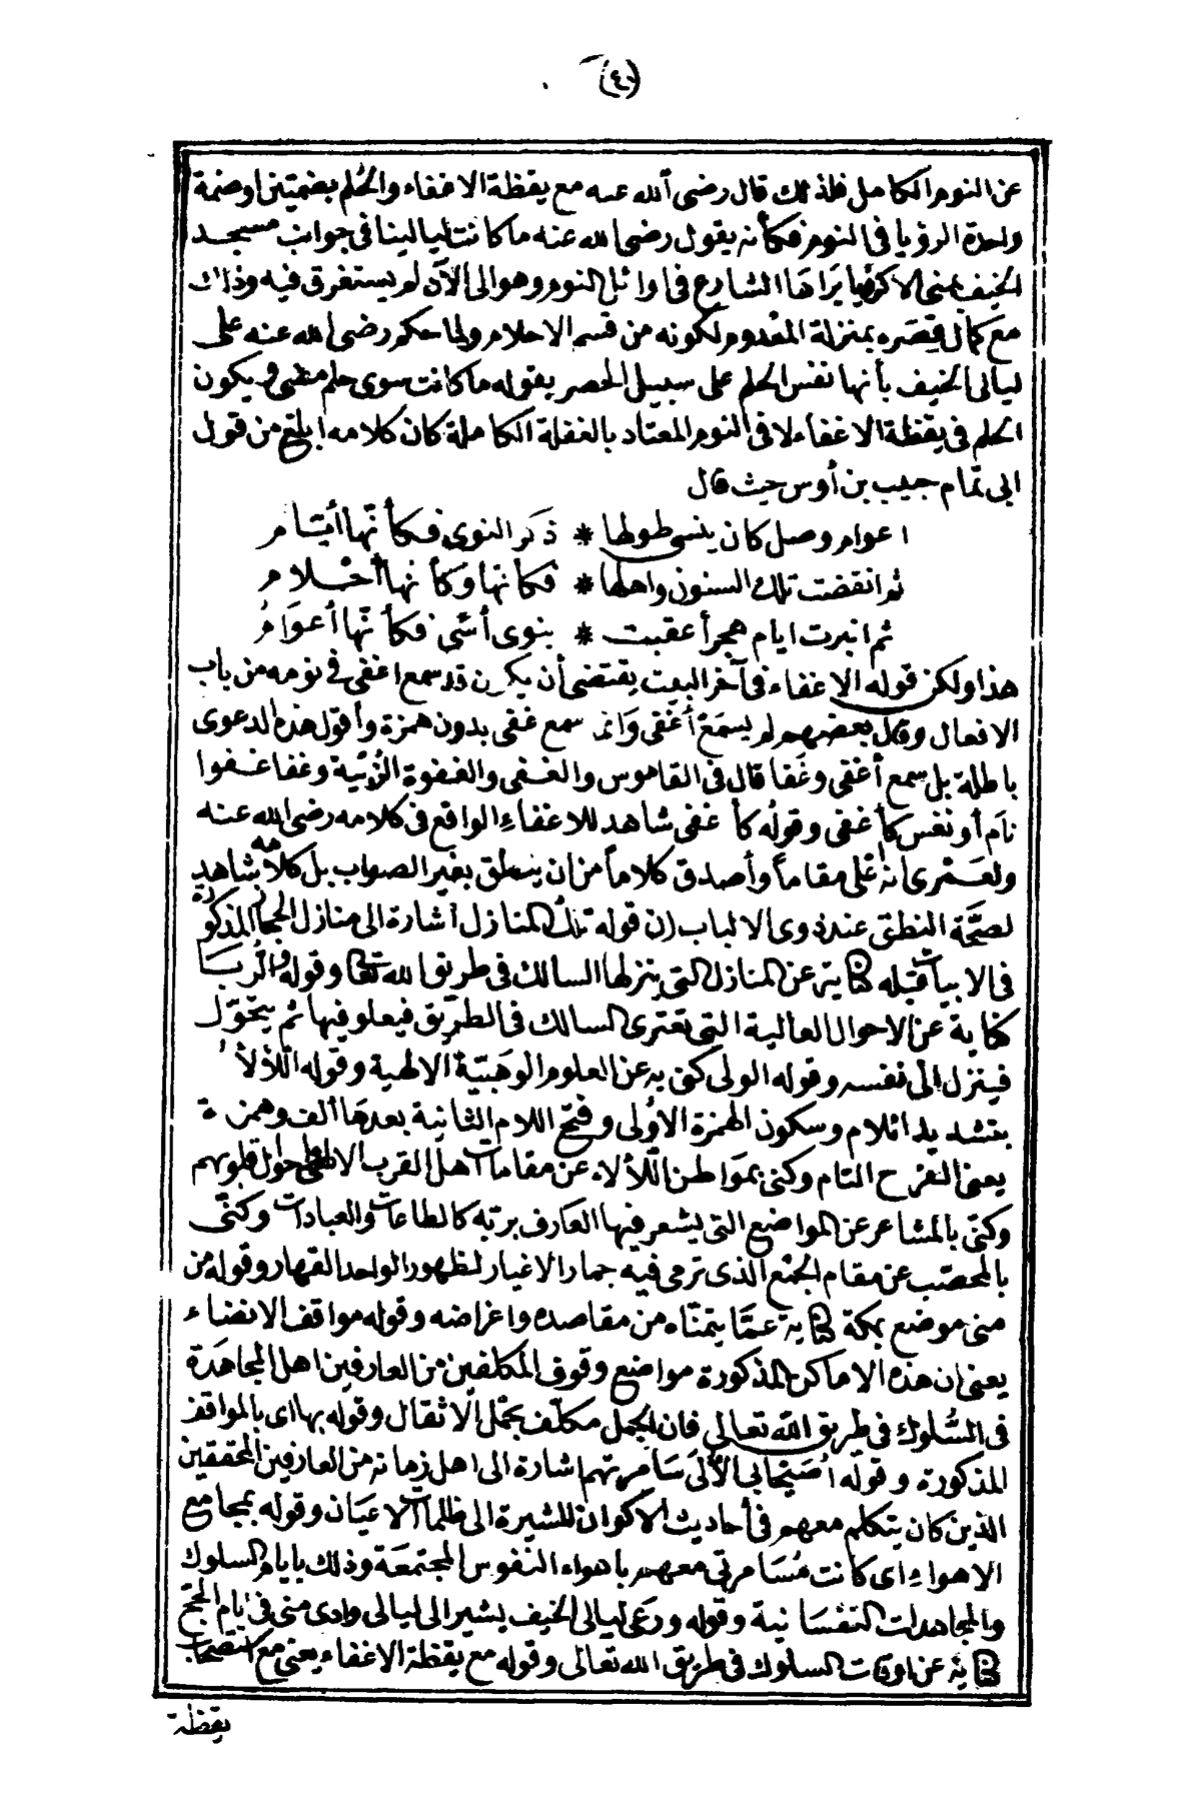 (٤٠)
عن النوم الكامل فلذلك قال رضى الله عنه مع يقظة الاغفاء والحُلم بضمتين اوضمة
واحدة الرؤيا فى النوم فكأنه يقول رضى الله عنه ما كانت ليالينا فى جوانب مسجد
الخيف بمنى الا كرؤيا يَراهَا الشارع فى اوائل النوم وهو الى الآن لم يستغرق فيه وذلك
مع كمال قِصَره بمنزلة المعْدوم لكونه من قسم الاحلام ولما حكم رضى الله عنه على
ليالى الخيف بأنها نفس الحلم على سبيل الحصر بقوله ما كانت سوى حلم مضى ويكون
الحلم فى يقظة الاغفاء لا فى النوم المعتاد بالغفلة الكاملة كان كلامه ابلغ من قول
ابى تمّام حبيب بن أوس حيث قال
اعوام وصل كان ينسى طولها * ذَكَر النوى فكأنّها أيّام
ثم انقضت تلك السنون واهلها * فكأنّها وكأنهاأحْلام
ثم انبرت ايام هجر أعقبت * بنوى أسًى فكأنّها أعوَامُ
هذا ولكن قوله الاغفاء فى آخر البيت يقتضى أن يكون قد سمع اغفى فى نومه من باب
الافعال وقال بعضهم لم يسمَعْ أغفى وَانما سمع غفى بدون همزة وأقول هذه الدعوى
باطلة بل سمع أغفى وغَفا قال فى القاموس والغفى والغفوة الزُّبْية وغفا غفوا
نام أو نعس كأغفى وقولُه كأغفى شاهد للاغفاءِ الواقع فى كلامه رضى الله عنه
ولعَمْرى انه اعْلى مقاماً وأصدق كلاماً من ان ينطق بغير الصواب بل كلامه شاهد
لصحَّة النطق عند ذوى الالباب (ن قوله تلكُ المنازل اشارة الى منازل الحجاز المذكورة
فى الابيات قبله كناية عن المنازل التى ينزلها السالك فى طريق الله تعالى وقوله والرُّبَا
كناية عن الاحوال العالية التى تعترى السالك فى الطرّيق فيعلو فيها ثم يتحّوّل
فينزل الى نفسه وقوله الولى كنى به عن العلوم الوَهَبيّة الالهية وقوله اللّألأُ
بتشديد اللام وسكون الهمزة الاوُلى وفتح اللام الثانية بعدهَا ألف وهمزة
يعنى الفرح التام وكنى بمَوَاطن اللّألاء عن مقامات اهل القرب الالهى واحوال قلوبهم
وكنّى بالمشاعر عن المواضع التى يشعر فيها العارف بربّه كالطاعات والعبادات وكنّى
بالمحصّب عن مقام الجمْع الذى ترمى فيه جمار الاغيار لظهور الواحد القهار وقوله من
منى موضع بمكة كناية عمَّا يتمنّاه من مقاصده واغراضه وقوله مواقف الانضاء
يعنى ان هذه الاماكن المذكورة مواضع وقوف المكلفين من العارفين اهل المجاهَدَة
فى السُّلوك فى طريق الله تعالى فان الجمل مكلّف بحمْل الاثقال وقوله بها اى بالمواقف
المذكورة وقوله اصَيْحابى الألَى سَامرتهم اشارة الى اهل زمانه من العارفين المحققين
الذين كان يتكلم معهم فى أحاديث الاكوان المشيرة الى ظلمات الاعيَان وقوله بمجامع
الاهواءِ اى كانت مُسَامرتى معهم باهواء النفوس المجتمعَة وذلك بايام السلوك
والمجاهدات النفسَانية وقوله ورعَى ليالى الخيف يشير الى ليالى وادى منى فى ايام الحجّ
كناية عن اوقات السلوك فى طريق الله تعالى وقوله مع يقظة الاغفاء يعنى مع استصحاب
يقظة